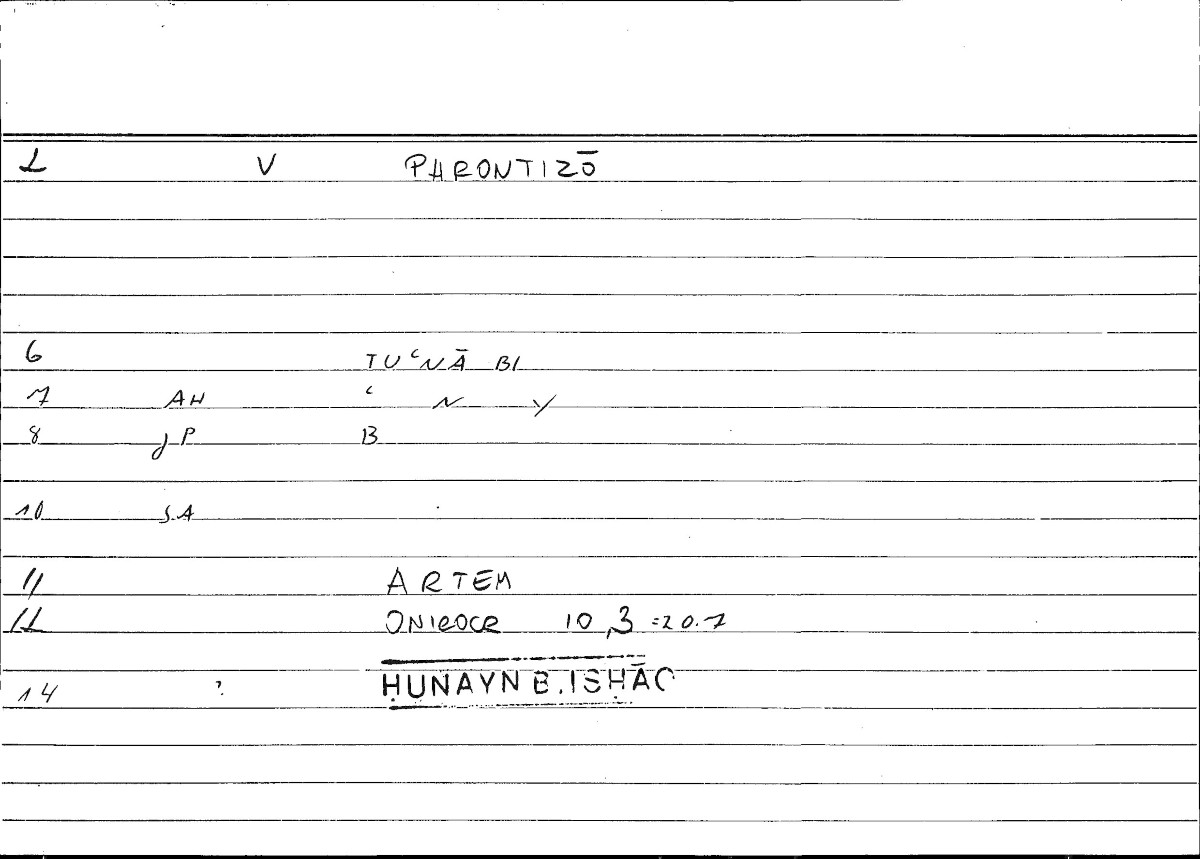 1 V PHRONTIZŌ
6 TUʿNĀ BI
7 AH ʿ N Y
8 JP B
10 SA
11 ARTEM
12 ONIROCR 10,3 =20.7
14 ? ḤUNAYN B. ISḤĀQ